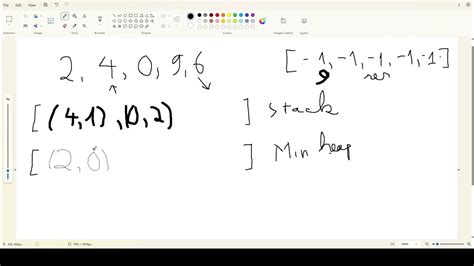 2, 4, 0, 9, 6
[-1, -1, -1, -1, -1]
9 res
[(4,1), (0,2) ] stack
[(2,0) ] Min heap